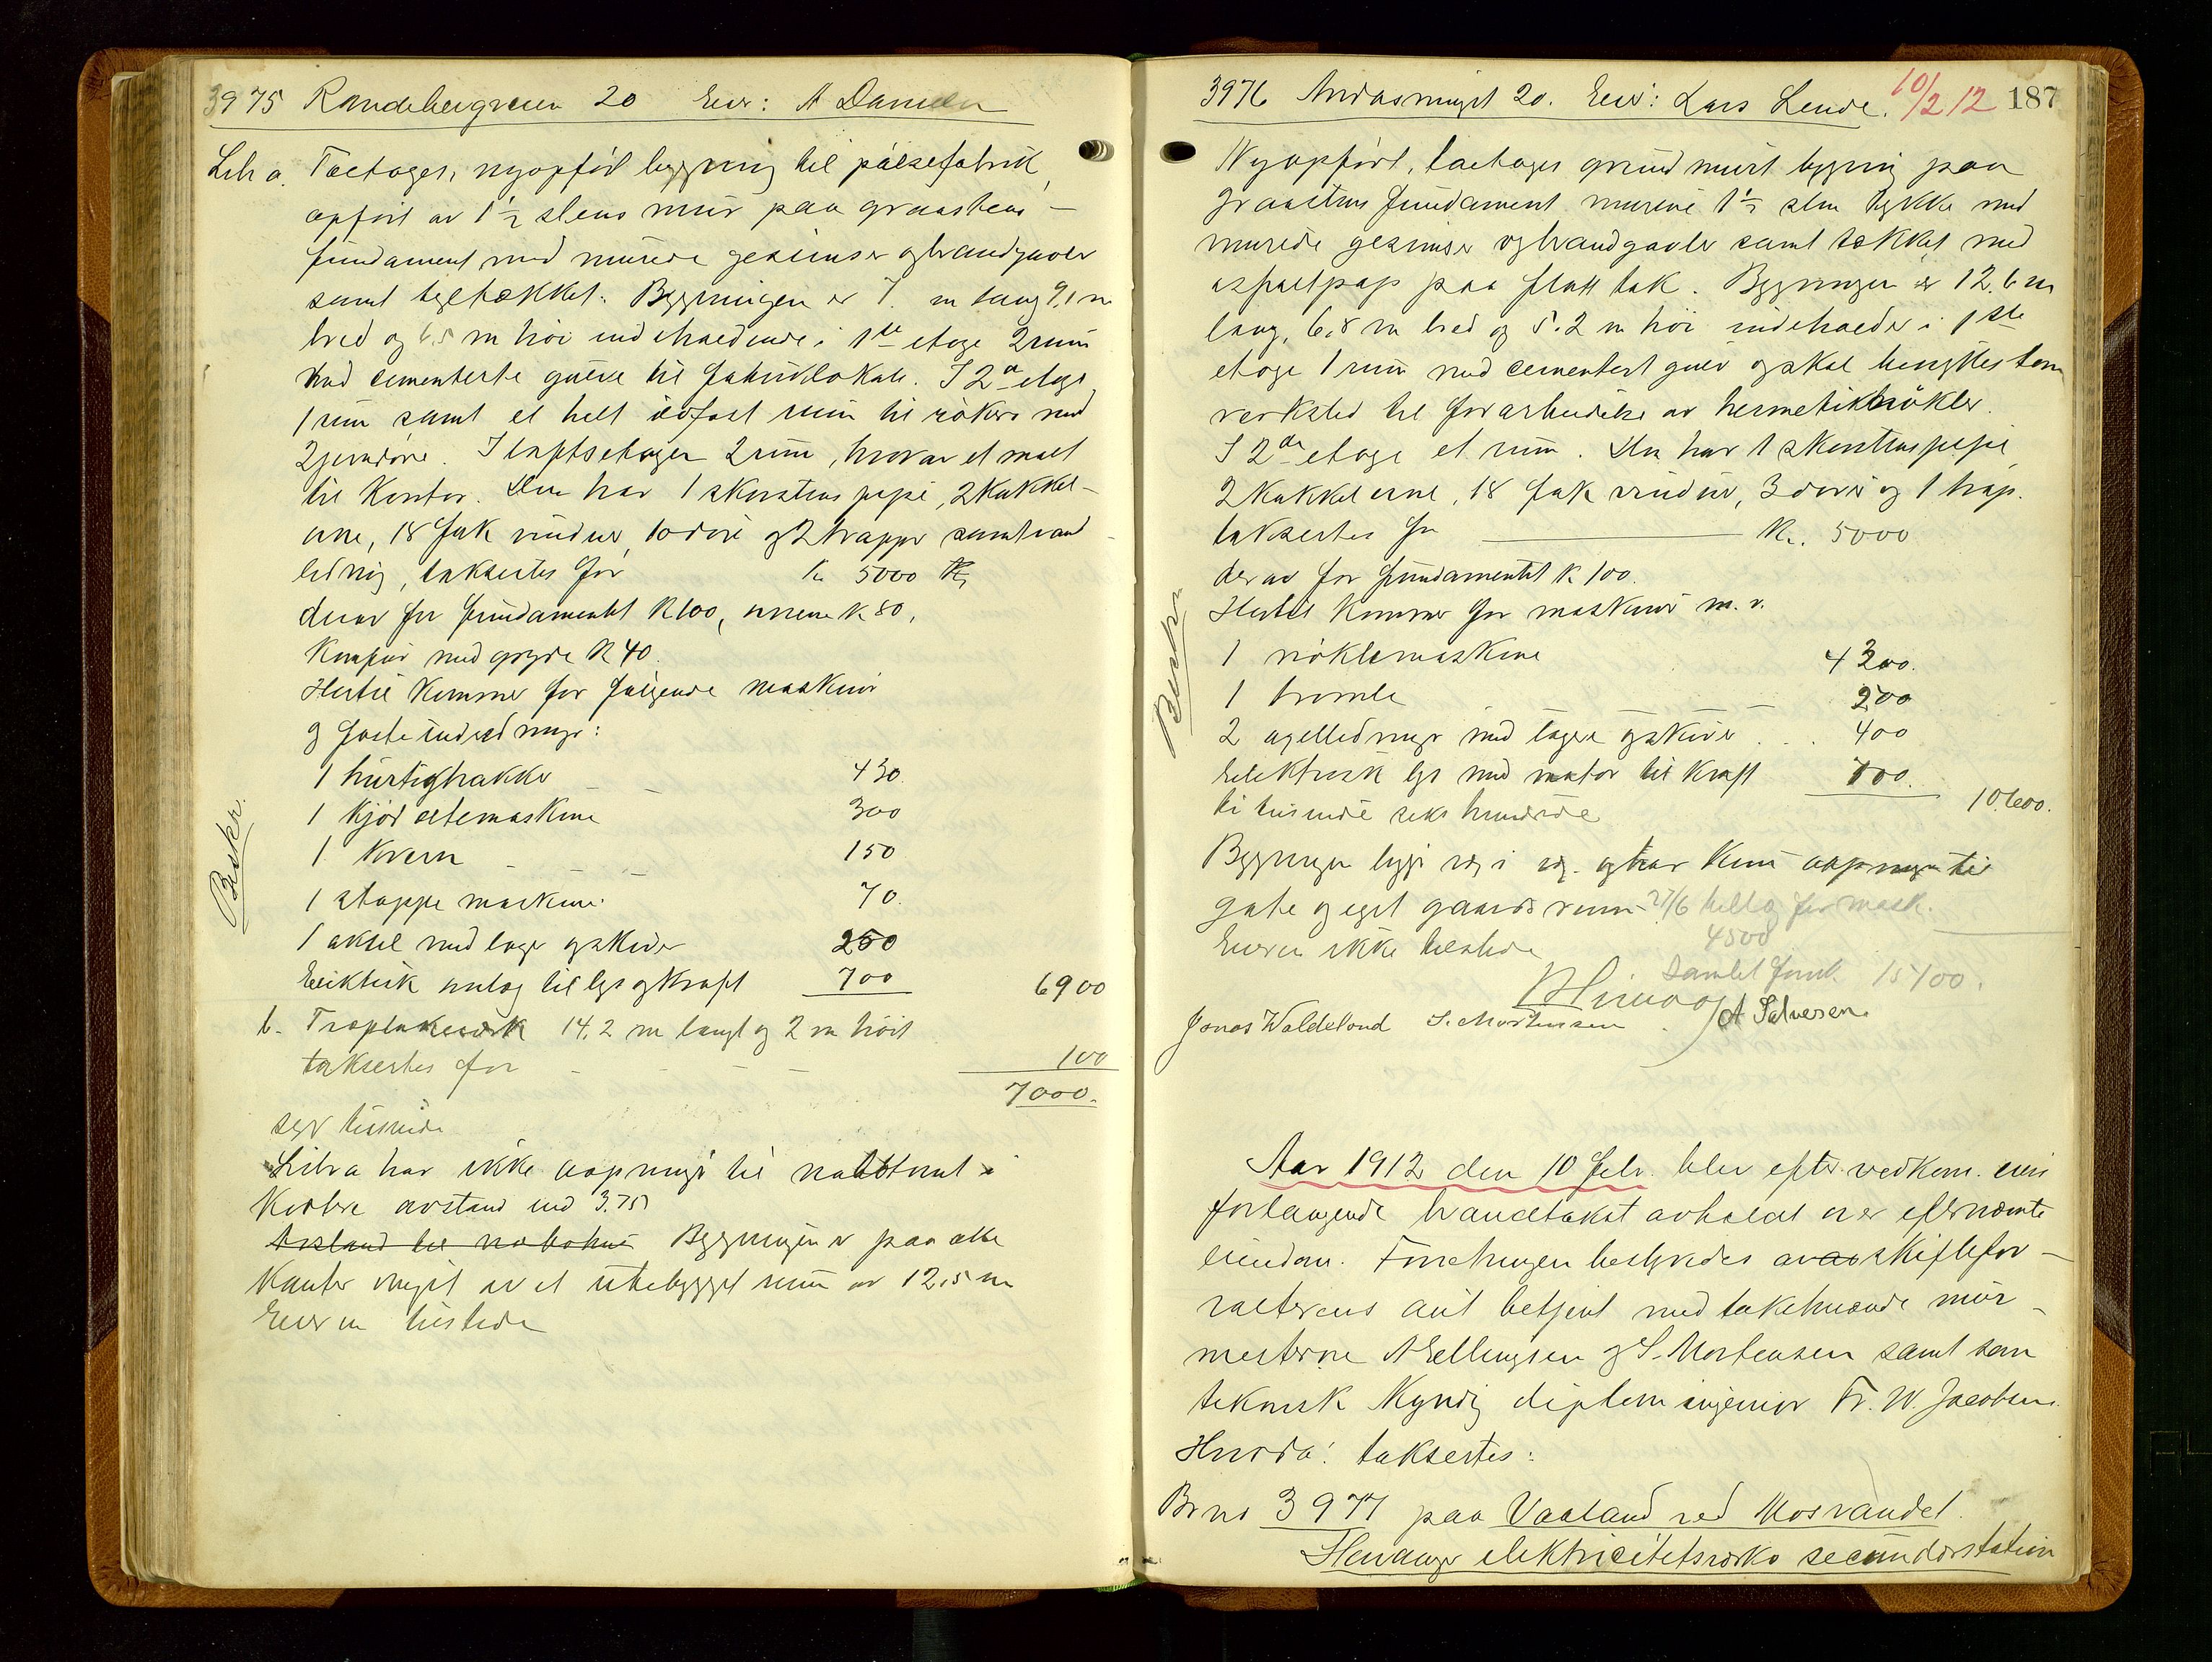 3975 Randebergveien 20 Eier: A Danielsen
Litr a. Toetages, nyopført bygning til pølsefabrik,
opført av 1½ stens mur paa graastens-
fundament med murede gesimser og brandgavler
samt tegltækket. Bygningen er 7. m lang 9,1 m
bred og 6.5 m høi indeholdende i 1ste etage 2 rum
med cementerte gulve til fabriklokale. I 2den etage
1 rum samt et helt ildfast rum til røkeri med
2 jerndøre. I loftsetagen 2 rum, hvorav et malt
til kontor. Den har 1 skorstenspipe, 2 kakkel-
ovne, 18 fak vinduer, 10 døre og 2 trapper samt vand
ledning, taksertes for kr 5000
derav for fundamentet k 100, ovnene k 80,
komfur med gryde k 40.
Hertil kommer for følgende maskiner
og faste indredninger:
1 hurtighakker 430.
1 kjødeltemaskine 300
1 kvern 150
1 stoppemaskine 70.
1 aksel med lager og skiver 250
Elektrisk anlæg til lys og kraft 700 6900
b. Træplankeværk 14.2 m langt og 2 m høit
taksertes for 100
7000.
syv tusinde
Litr a har ikke aapninger til nabotomt i
kortere avstand end 3.75
Avstand til nabohus Bygningen er paa alle
kanter omgit av et ubebygget rum av 12.5 m
Eieren tilstede
Beskr.
3976 Andasmuget 20. Eier: Lars Lende. 10/2 12 187
Nyopført, toetages grundmurt bygning paa
graastens fundament murene 1½ sten tykke med
murede gesimser og brandgavler samt tækket med
asfaltpap paa flatt tak. Bygningen er 12.6 m
lang, 6,8 m bred og 5.2 m høi indeholder i 1ste
etage 1 rum med cementert gulv og skal benyttes som
verksted til forarbeidelse av hermetiknøkler.
I 2den etage et rum. Den har 1 skorstenspipe
2 kakkelovne, 18 fak vinduer, 3 døre og 1 trap.
taksertes for kr. 5000
derav for fundamentet k 100.
Hertil kommer for maskiner m. v.
1 nøklemaskine 4300.
1 tromle 200
2 axelledninger med lagere og skiver 400
Elektrisk lys med motor til kraft 700.
ti tusinde seks hundrede 10.600.
Bygningen ligger væg i væg og har kun aapninger til
gate og eget gaardsrum. 27/6 tillæg for mask.
4500
Eieren ikke tilstede
Samlet forsk. 15100.
Jonas Waldeland S. Mortensen A Salvesen
Beskr.
Aar 1912 den 10 febr. blev efter vedkom. eiers
forlangende brandtakst avholdt over efternævnte
eiendom. Forretningen bestyredes av skiftefor-
valterens aut betjent med takstmænd mur-
mesterne A Ellingsen og S. Mortensen samt som
teknisk kyndig diplom ingeniør Fr. W. Jacobsen.
Hvorda: taksertes:
Br no 3977 paa Vaaland ved Mosvandet.
Stavanger elektricitetsverks secundærstation